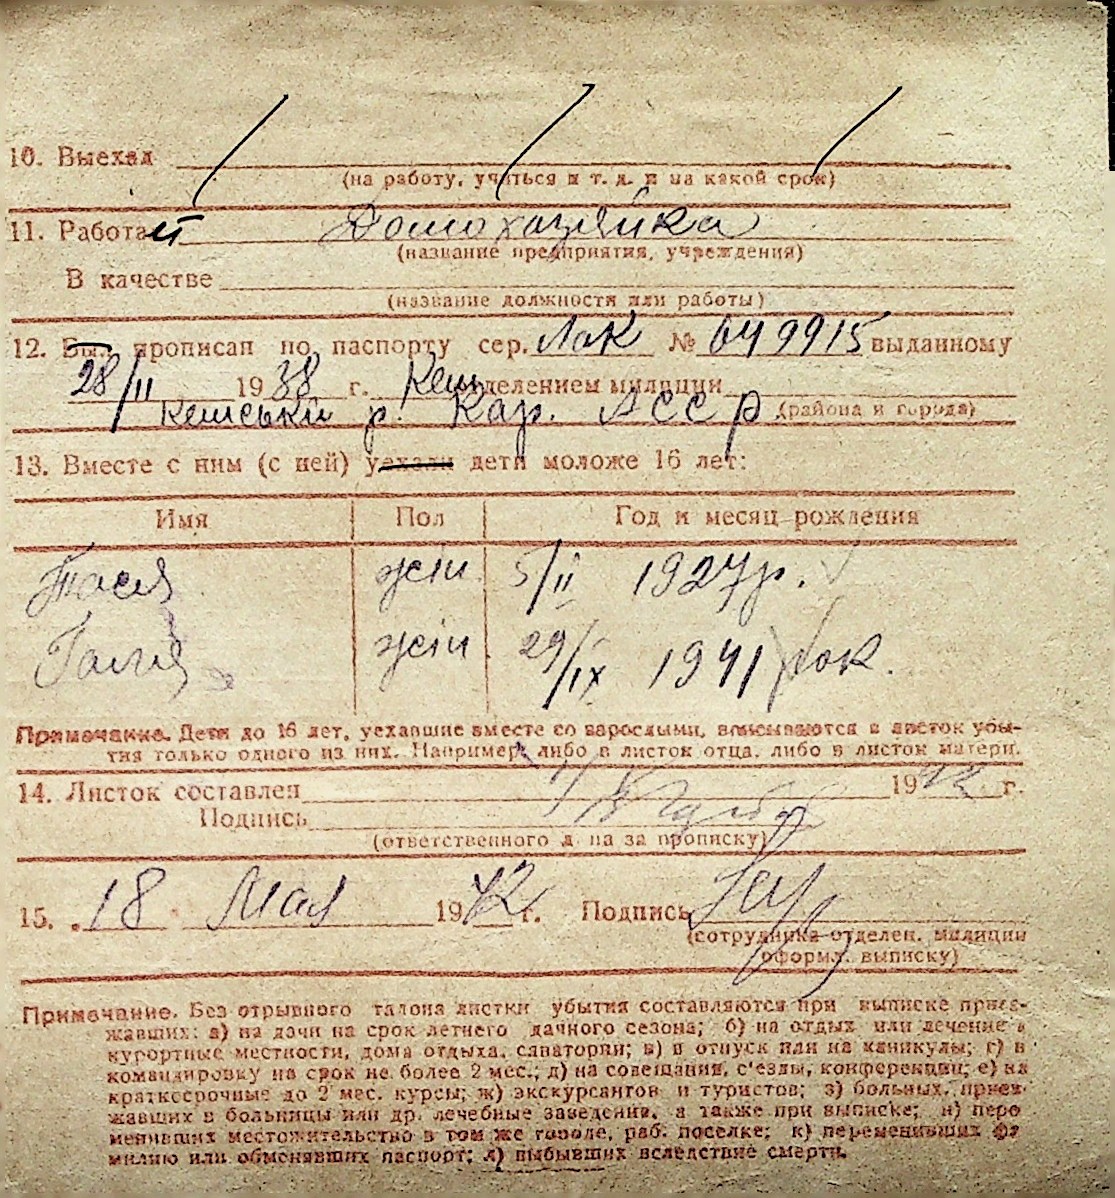 10. Выехал
(на работу, учиться и т. д. и на какой срок)
11. Работает Домохазяйка
(название предприятия, учреждения)
В качестве
(название должности или работы)
12. Был прописан по паспорту сер. ЛоК № 049915 выданному
28/II 1938 г. Кем отделением милиции
р. Кар. АССР (района и города)
13. Вместе с ним (с ней) уехали дети моложе 16 лет:
Имя Пол Год и месяц рождения
Тася жін 5/II 1927 р.
Галя жін 29/IX 1941 рок.
Примечание. Дети до 16 лет, уехавшие вместе со взрослыми, вписываются в листок убы-
тия только одного из них. Например, либо в листок отца, либо в листок матери.
14. Листок составлен 1942 г.
Подпись
(ответственного д. на за прописку)
15. „18" Мая 1942 г. Подпись
(сотрудника отделен. милиции
оформл. выписку)
Примечание. Без отрывного талона листки убытия составляются при выписке приез-
жавших: а) на дачи на срок летнего дачного сезона; б) на отдых или лечение в
курортные местности, дома отдыха, санатории; в) в отпуск или на каникулы; г) в
командировку на срок не более 2 мес.; д) на совещания, с'езды, конференции; е) на
краткосрочные до 2 мес. курсы; ж) экскурсантов и туристов; з) больных, приез-
жавших в больницы или др. лечебные заведения, а также при выписке; и) пере
менивших местожительство в том же городе, раб. поселке; к) переменивших фа
милию или обменявших паспорт; л) выбывших вследствие смерти.